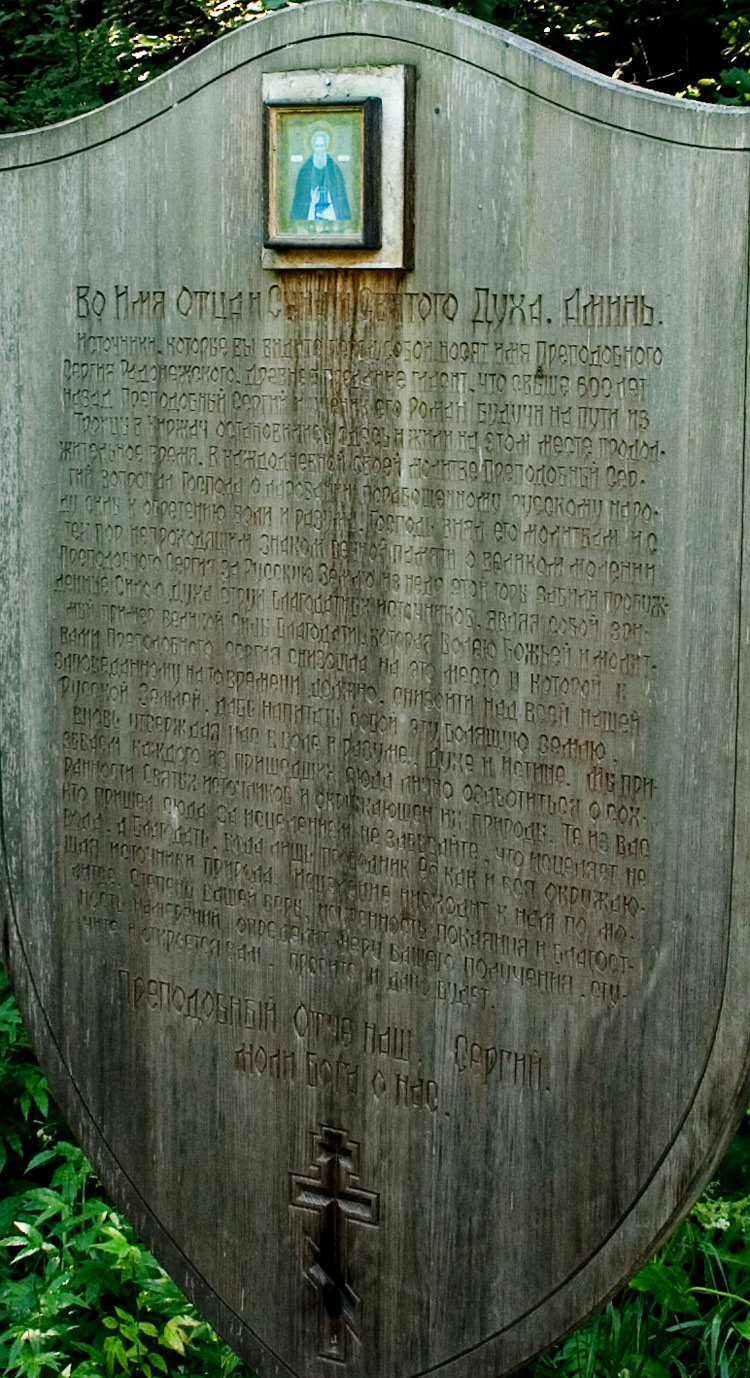 Во Имя Отца и Сына и Святого Духа. Аминь.
Источники, которые вы видите перед собой, носят имя Преподобного
Сергия Радонежского. Древнее предание гласит, что свыше 600 лет
назад Преподобный Сергий и ученик его Роман будучи на пути из
Троицы в Киржач остановились здесь и жили на этом месте продол-
жительное время. В каждодневной своей молитве Преподобный Сер-
гий вопрошал Господа о даровании порабощенному русскому наро-
ду силы к обретению воли и разума. Господь внял его молитвам и с
тех пор непроходящим знаком вечной памяти о великом молении
Преподобного Сергия за Русскую Землю из недр этой горы забили пробуж-
денные Силою Духа струи благодатных источников, являя собой зри-
мый пример великой силы Благодати, которая волею Божьей и молит-
вами Преподобного Сергия снизошла на это место и которой к
заповеданному на то времени должно снизойти над всей нашей
Русской Землей, дабы напитать собой эту болящую землю,
вновь утверждая нас в воле и разуме, Духе и истине. Мы при-
зываем каждого из пришедших сюда лично озаботиться о сох-
ранности Святых источников и окружающей их природы. Те из вас
кто пришел сюда за исцелением, не забывайте, что исцеляет не
вода, а Благодать. Вода лишь проводник Ея как и вся окружаю-
щая источники природа. Исцеление нисходит к нам по мо-
литве. Степень вашей веры, истинность покаяния и благост-
ность намерений определят меру вашего получения. Сту-
чите и откроется вам, просите и дано будет.
Преподобный Отче наш Сергий,
моли Бога о нас.